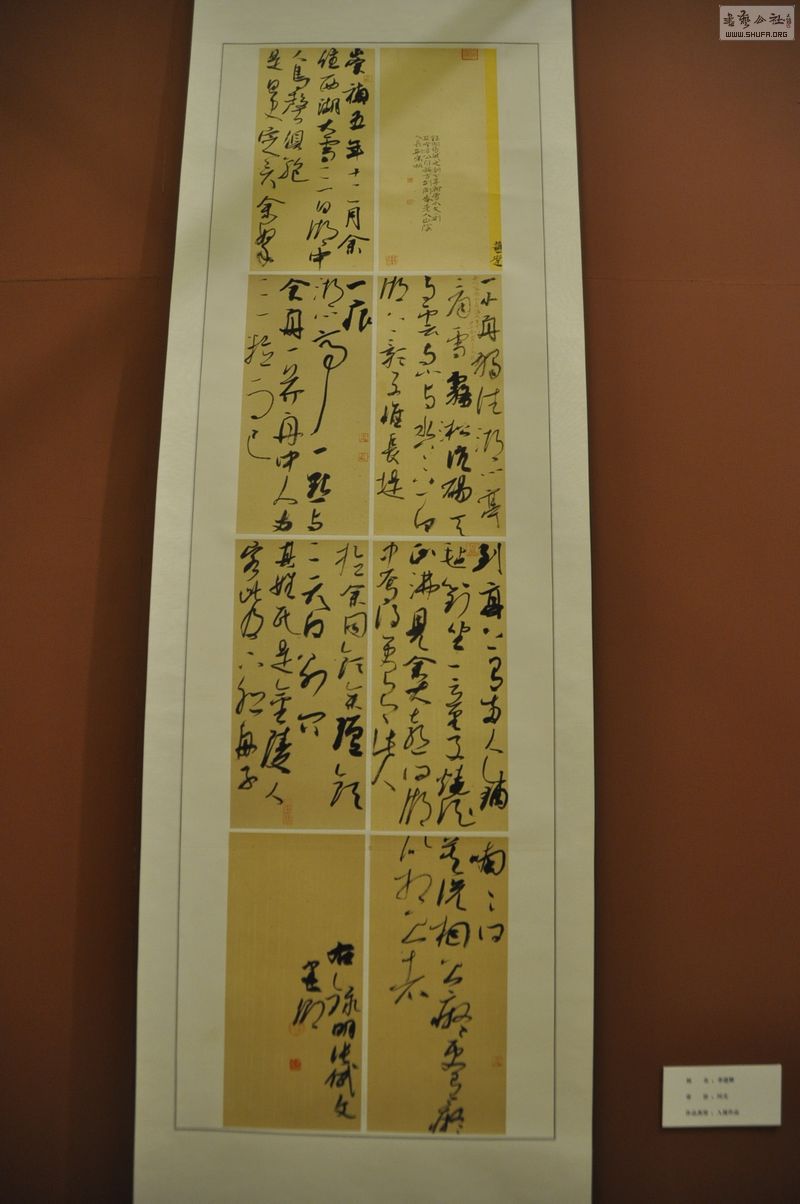 崇禎五年十二月余
住西湖大雪三日湖中
人鳥聲俱絕
是日更定矣余拏
一小舟獨往湖心亭
看雪霧淞沆碭天
與雲與山與水上下一白
湖上影子惟長堤
一痕
湖心亭一點與
余舟一芥舟中人兩
三粒而已
到亭上有兩人鋪
氈對坐一童子燒酒爐
正沸見余大喜曰湖
中焉得更有此人
拉余同飲余強飲
三大白而別問
其姓氏是金陵人
客此及下船舟子
喃喃曰
莫說相公癡更有癡
似相公者
右錄明張岱文
WWW.SHUFA.ORG